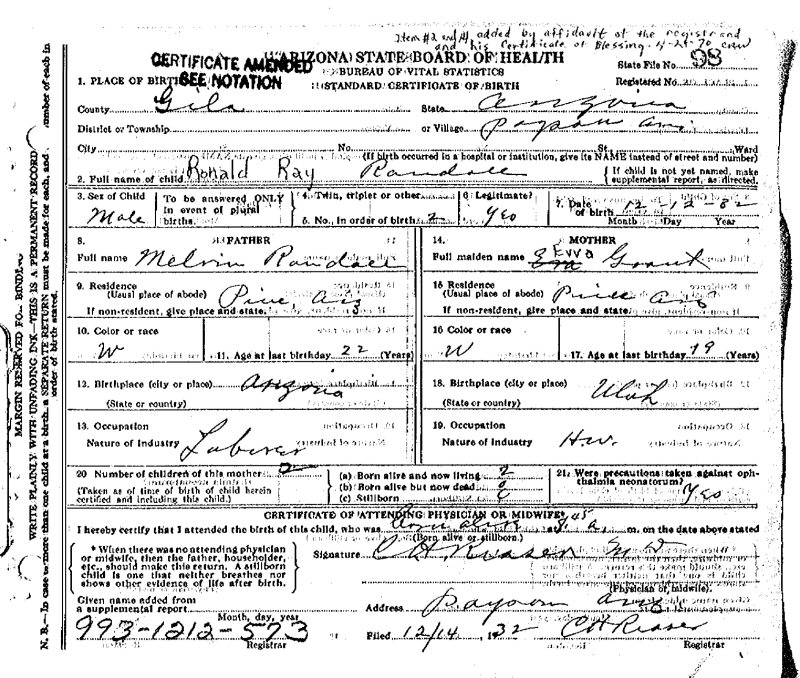 Item #2 and 14 added by affidavit of the registrand
and his Certificate of Blessing 4-21-70 crew
CERTIFICATE AMENDED
SEE NOTATION
ARIZONA STATE BOARD OF HEALTH
BUREAU OF VITAL STATISTICS
STANDARD CERTIFICATE OF BIRTH
State File No. 98
Registered No.
1. PLACE OF BIRTH
County Gila State Arizona
District or Township or Village Payson Ariz
City No. St. Ward
(If birth occurred in a hospital or institution, give its NAME instead of street and number)
2. Full name of child Ronald Ray Randall { If child is not yet named, make supplemental report, as directed.
3. Sex of Child Male
To be answered ONLY in event of plural births.
4. Twin, triplet or other
5. No., in order of birth 2
6. Legitimate? Yes
7. Date of birth 12-12-32
Month Day Year
8. FATHER
Full name Melvin Randall
14. MOTHER
Full maiden name Eva Ewa Grant
9. Residence Pine, Ariz
(Usual place of abode)
If non-resident, give place and state.
15 Residence Pine Ariz
(Usual place of abode)
If non-resident, give place and state.
10. Color or race W
11. Age at last birthday 22 (Years)
16 Color or race W
17. Age at last birthday 19 (Years)
12. Birthplace (city or place) Arizona
(State or country)
18. Birthplace (city or place) Utah
(State or country)
13. Occupation
Nature of Industry Laborer
19. Occupation
Nature of Industry H.w.
20 Number of children of this mother 2
(Taken as of time of birth of child herein certified and including this child.)
(a) Born alive and now living 2
(b) Born alive but now dead 0
(c) Stillborn
21. Were precautions taken against ophthalmia neonatorum? Yes
CERTIFICATE OF ATTENDING PHYSICIAN OR MIDWIFE*
I hereby certify that I attended the birth of this child, who was Born alive at 8:45 a. m. on the date above stated
(Born alive or stillborn.)
{ * When there was no attending physician or midwife, then the father, householder, etc., should make this return. A stillborn child is one that neither breathes nor shows other evidence of life after birth. }
Signature C H Risser M D
(Physician or midwife).
Given name added from
a supplemental report
Month, day, year
Address Payson Ariz
993-1212-573
Registrar
Filed 12/14, 1932 C H Risser
Registrar
MARGIN RESERVED FOR BINDING
WRITE PLAINLY WITH UNFADING INK—THIS IS A PERMANENT RECORD
N. B.—In case of more than one child at a birth, a SEPARATE RETURN must be made for each, and number of each in order of birth stated.